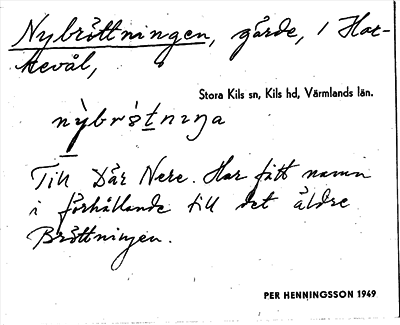 Nybröttningen, gärde, i Hat-
tevål,
Stora Kils sn, Kils hd, Värmlands län.
Till Där Nere. Har fått namn
i förhållande till det äldre
Bröttningen.
PER HENNINGSSON 1949